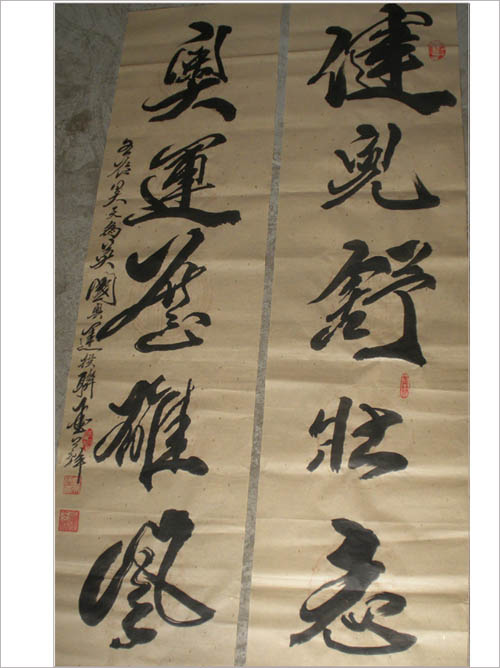 健兒舒壯志
奧運雄風
壬辰昊天為英國奧運撰聯